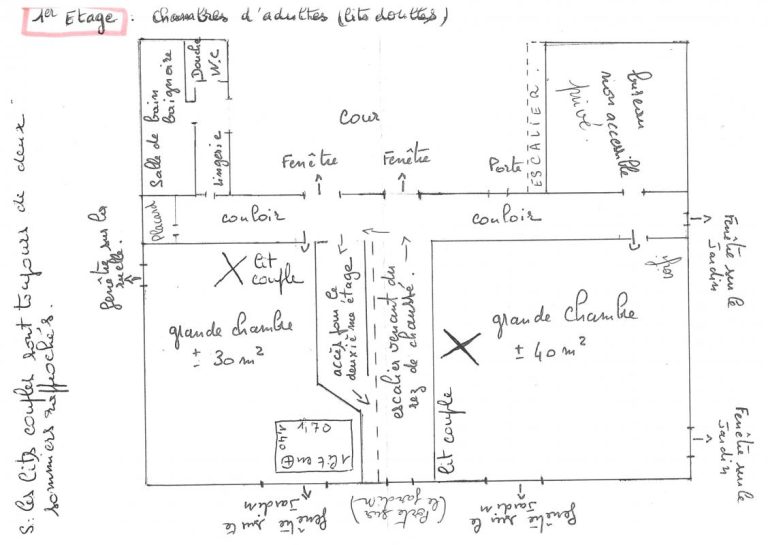 1er Etage : chambres d'adultes (lits doubles)
Salle de bain
baignoire
Douche
W.C
Lingerie
Cour
Fenêtre
Fenêtre
Porte
ESCALIER.
bureau
non accessible
privé.
Placard
couloir
couloir
fenêtre sur la
ruelle.
Fenêtre sur le
Jardin
lit
couple
grande chambre
± 30 m²
accès pour le
deuxième étage
escalier venant du
rez de chaussé.
grande chambre
± 40 m²
lit couple
1 lit en
1,40
Fenêtre sur le
Jardin
fenêtre sur le
Jardin
(Porte sur
le jardin)
fenêtre sur le
Jardin
S: les lits couples sont toujours de deux
sommiers rapprochés.